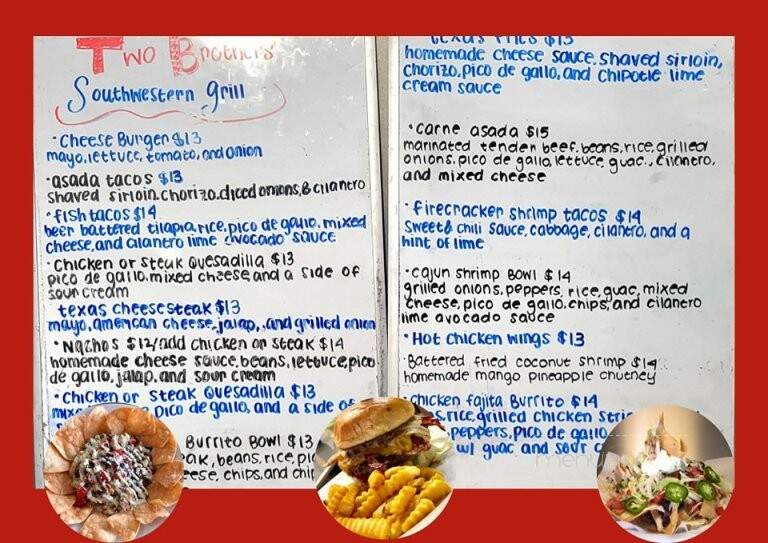 Two Brothers'
Southwestern Grill
· Cheese Burger $13
mayo, lettuce, tomato, and onion
· asada tacos $13
shaved sirloin, chorizo, diced onions, & cilantro
· fish tacos $14
beer battered tilapia, rice, pico de gallo, mixed
cheese, and cilantro lime avocado sauce
· Chicken or steak Quesadilla $13
pico de gallo, mixed cheese, and a side of
sour cream
texas cheesesteak $13
mayo, american cheese, jalap., and grilled onion
· Nachos $12/add chicken or steak $14
homemade cheese sauce, beans, lettuce, pico
de gallo, jalap. and sour cream
· Chicken or steak Quesadilla $13
pico de gallo, and a side of
Burrito Bowl $13
beans, rice,
chips, and
texas fries $13
homemade cheese sauce, shaved sirloin,
chorizo, pico de gallo, and chipotle lime
cream sauce
· carne asada $15
marinated tender beef, beans, rice, grilled
onions, pico de gallo, lettuce, guac., cilantro,
and mixed cheese
· firecracker shrimp tacos $14
sweet & chili sauce, cabbage, cilantro, and a
hint of lime
· cajun shrimp Bowl $14
grilled onions, peppers, rice, guac, mixed
cheese, pico de gallo, chips, and cilantro
lime avocado sauce
· Hot chicken wings $13
· Battered fried coconut shrimp $14
homemade mango pineapple chutney
chicken fajita Burrito $14
rice, grilled chicken
peppers, pico de gallo
guac and sour